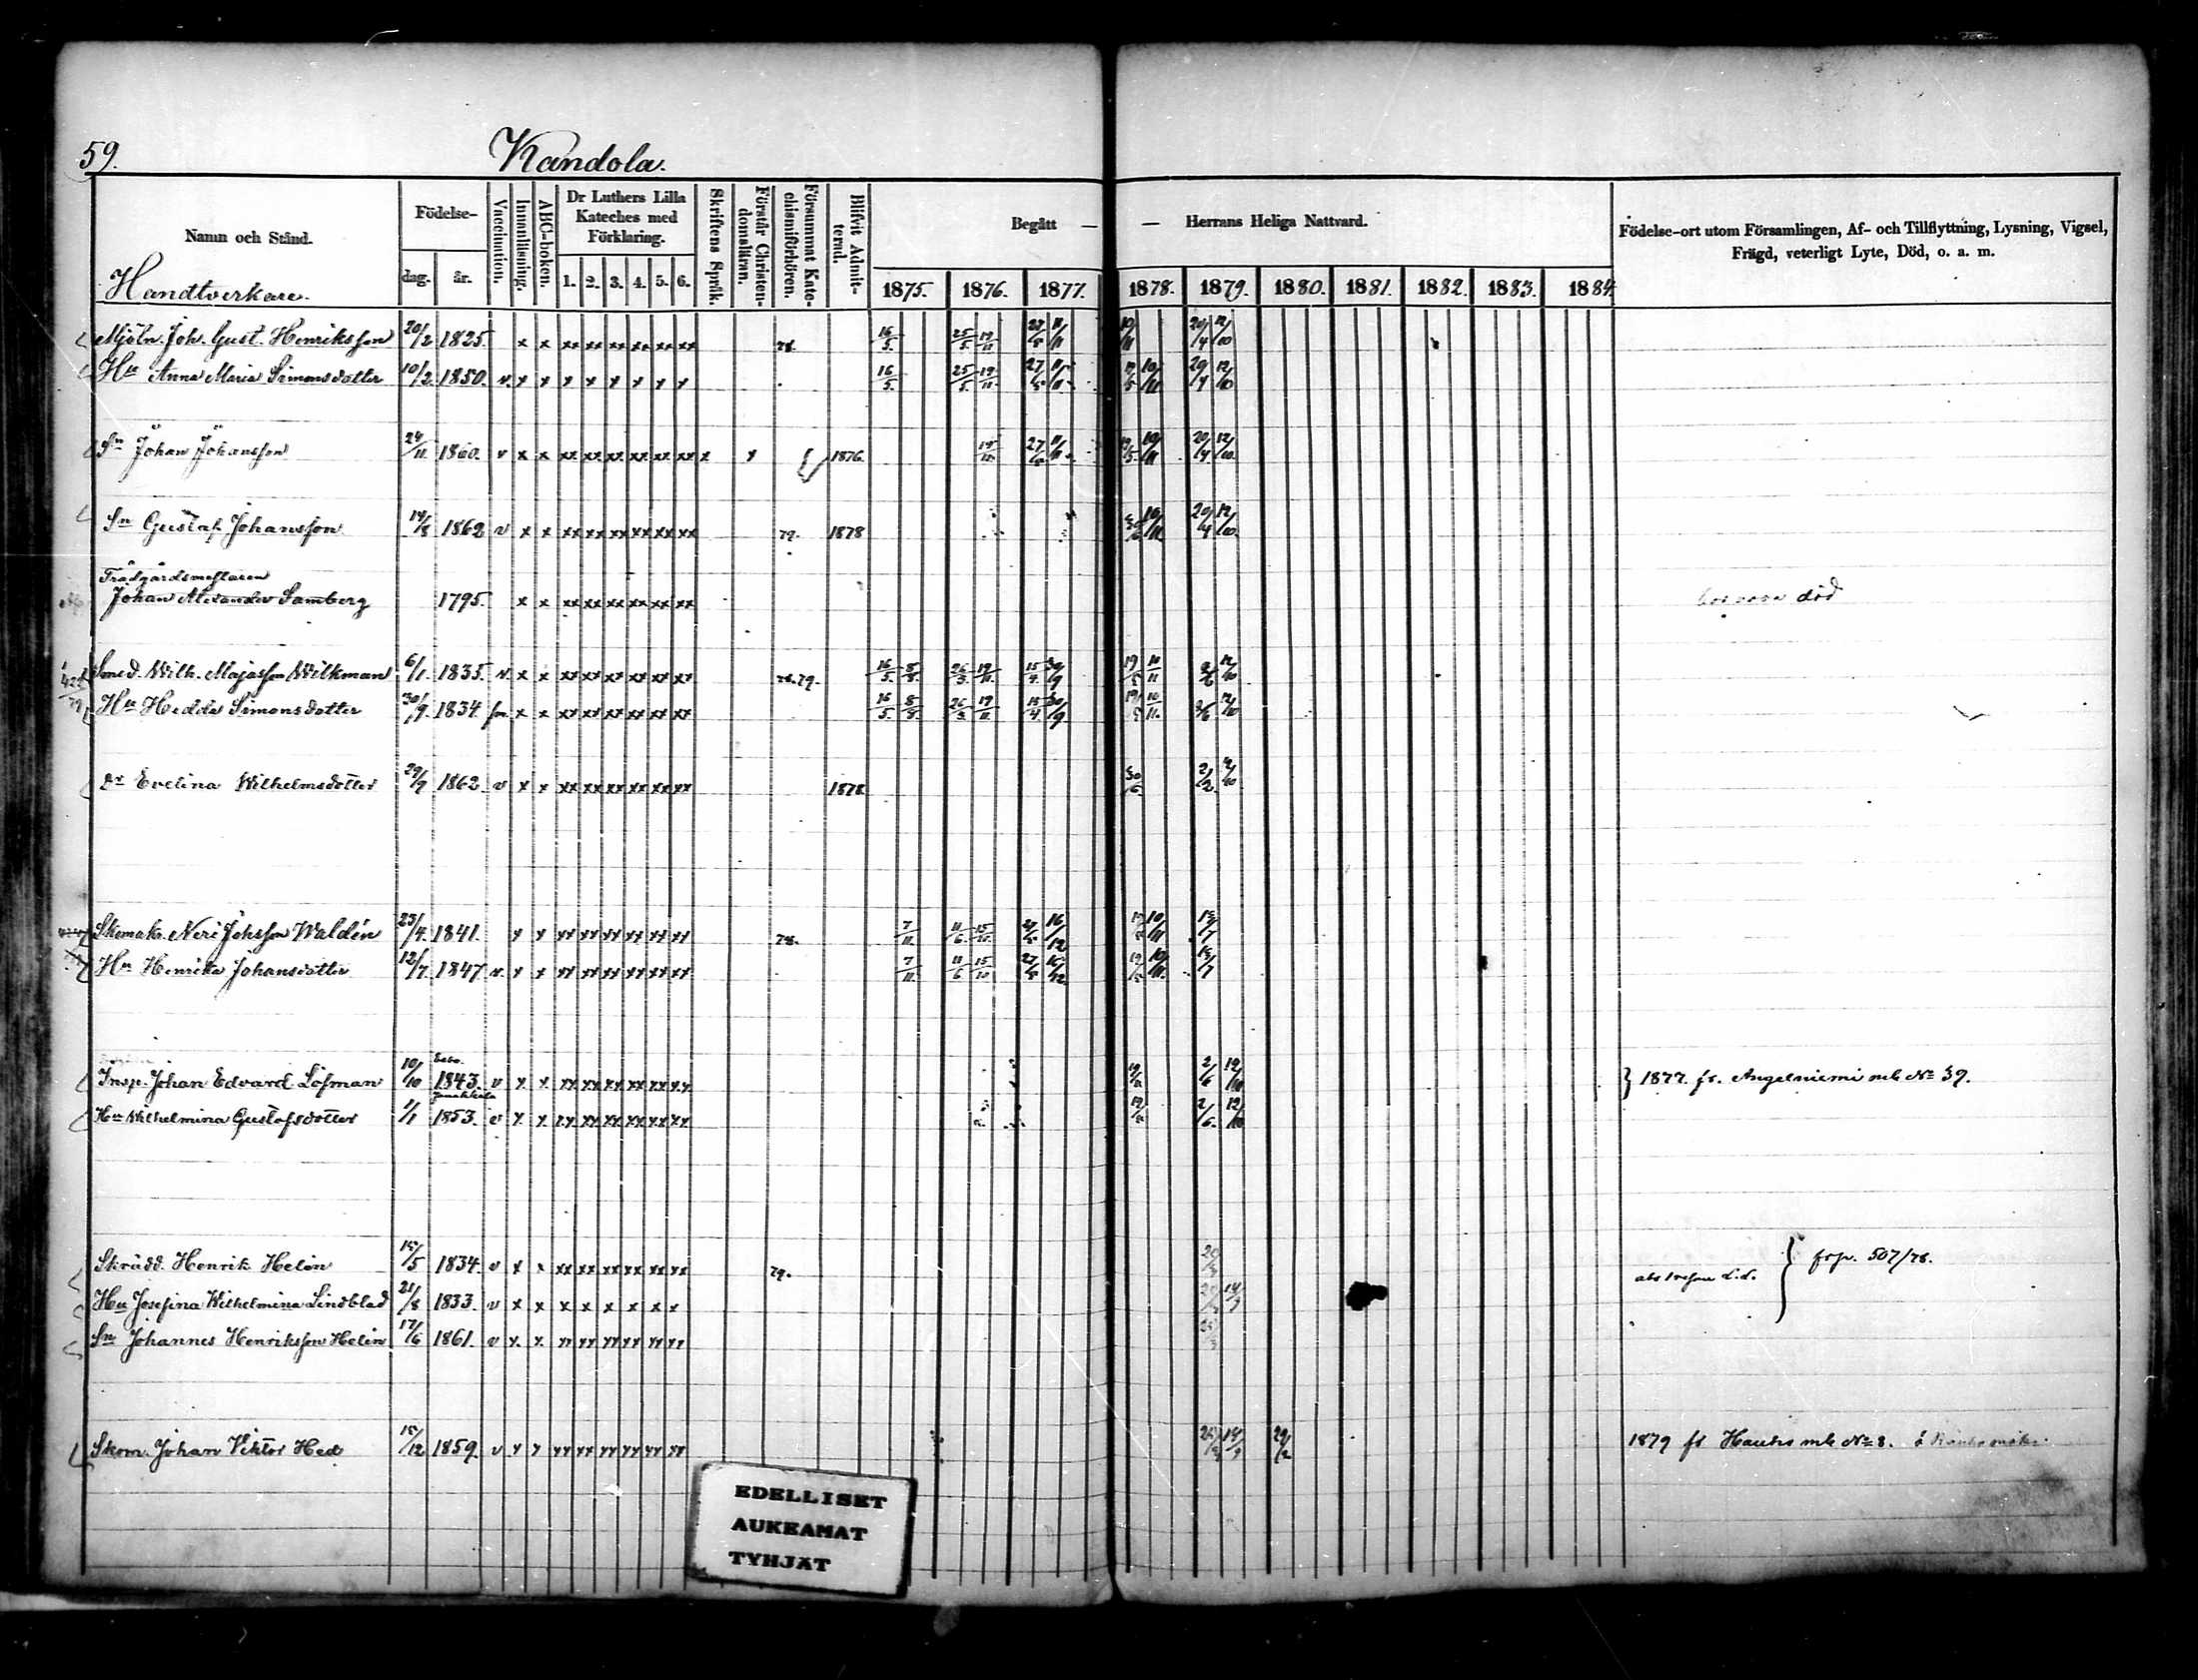 59. Kandola.
Namn och Stånd.
Födelse-
dag. år.
Vaccination.
Innanläsning.
ABC-boken.
Dr Luthers Lilla Kateches med Förklaring.
1. 2. 3. 4. 5. 6.
Skriftens Språk.
Förstår Christendomsläran.
Försummat Katechismiförhören.
Blifvit Admitterad.
Begått — — Herrans Heliga Nattvard.
1875. 1876. 1877. 1878. 1879. 1880. 1881. 1882. 1883. 1884
Födelse-ort utom Församlingen, Af- och Tillflyttning, Lysning, Vigsel,
Frägd, veterligt Lyte, Död, o. a. m.
Handtverkare.
Mjöln. Joh. Gust. Henriksson 20/2 1825. x x xx xx xx xx xx xx 78. 16/5. 25/5. 19/11 27/5 11/11 10/11 20/4 12/10
Hu Anna Maria Simonsdotter 10/2 1850. v x x x x x x x x 16/5. 25/5. 19/11 27/5 11/11 19/5 10/11 20/4 12/10
Sn Johan Johansson 24/11. 1860. v x x xx xx xx xx xx xx x x 1876. 19/11 27/5 11/11 19/5 10/11 20/4 12/10.
Sn Gustaf Johansson 14/8 1862 v x x xx xx xx xx xx xx 79. 1878 30/6 10/11 20/4 12/10.
Trädgårdsmästaren
Johan Alexander Samberg 1795. x x xx xx xx xx xx xx död
Smed. Wilh. Majasson Wilkman 6/1. 1835. v. x x xx xx xx xx xx xx 78. 79. 16/5. 8/8. 26/3. 19/11. 15/4. 30/9 19/5 10/11 2/6 12/10
Hu Hedda Simonsdotter 30/9. 1834. x x xx xx xx xx xx xx 16/5. 8/8. 26/3. 19/11. 15/4 30/9 19/5 10/11. 2/6 12/10
Dr Evelina Wilhelmsdotter 29/9 1862. v x x xx xx xx xx xx xx 1878 30/6. 2/2 12/10
Skomak. Neri Johsson Waldén 23/4. 1841. x x xx xx xx xx xx xx 78. 7/11. 11/6. 15/10. 27/5 16/12 19/5 10/11 13/7
Hu Henrika Johansdotter 12/7. 1847. v. x x xx xx xx xx xx xx 7/11. 11/6 15/10 27/5 16/12. 19/5 10/11. 13/7
Insp. Johan Edvard Löfman 10/10 1843. v x x xx xx xx xx xx xx 19/5 2/6 12/10 } 1877. fr. Angelniemi mb No 39.
Hu Wilhelmina Gustafsdotter 1/1 1853. v x x xx xx xx xx xx xx 19/5 2/6. 12/10
Skrädd. Henrik Helin 15/5 1834. v x x xx xx xx xx xx xx 79. 20/3 } frp. 507/78.
Hu Josefina Wilhelmina Lindblad 21/8 1833. v x x x x x x x x 20/3 14/9
Sn Johannes Henriksson Helin 17/6 1861. v x x xx xx xx xx xx xx 20/3
Skom. Johan Viktor Hed 15/12 1859. v x x xx xx xx xx xx xx 20/3 14/9 29/2 1879 fr Hauho mb No 8.
EDELLISET
AUKEAMAT
TYHJÄT